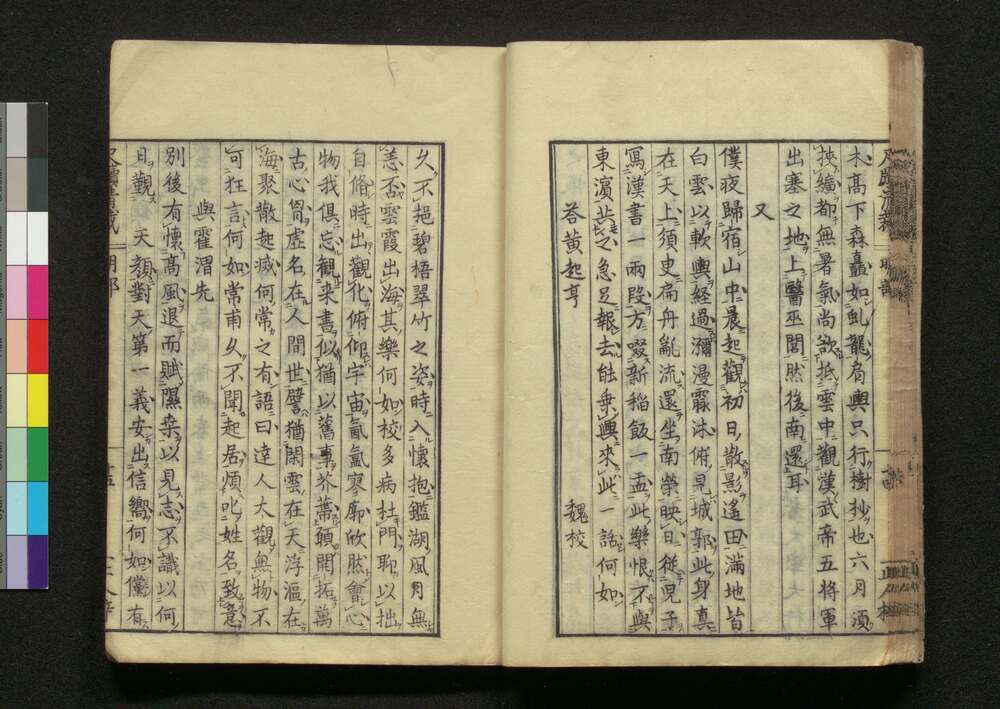 木高下森矗如虬龍肩輿只行樹杪也六月須
挾纊都無暑氣尚欲抵雲中觀漢武帝五將軍
出塞之地上醫巫閭然後南還耳
又
僕夜歸宿山中晨起觀初日散影遙田滿地皆
白雲以軟輿經過瀰漫霢沐俯見城郭此身真
在天上須臾扁舟亂流還坐南榮映日從兒子
寫漢書一兩段方啜新稻飯一盂此樂恨不與
東濵共之急足報去能乗興來此一話何如
荅黄起亨
魏校
久不挹碧梧翠竹之姿時入懷抱鑑湖風月無
恙否雲霞出海其樂何如校多病杜門聊以拙
自脩時出觀化俯仰宇宙氤氳寥廓欣然會心
物我俱忘観来書似猶以舊事芥蔕願開拓萬
古心胷虚名在人間世譬猶閑雲在天浮漚在
海聚散起滅何常之有語曰達人大觀無物不
可狂言何如常甫久不聞起居煩叱姓名致意
與霍渭先
別後有懷高風退而賦隰桒以見志不識以何
日觀天顔對天第一義安出信嚮何如儻有